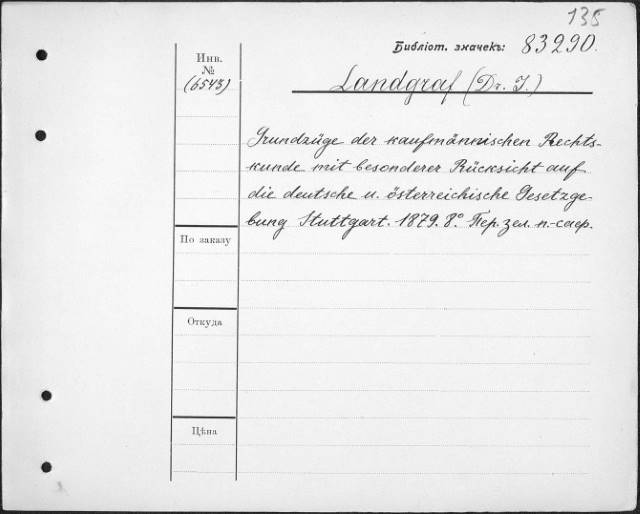 135
Библіот. значекъ: 83290.
Инв.
№
(6543)
Landgraf (Dr. J.)
Grundzüge der kaufmännischen Rechts-
kunde mit besonderer Rücksicht auf
die deutsche u. österreichische Gesetzge
bung Stuttgart. 1879. 8° Пер. зел. п.-саф.
По заказу
Откуда
Цѣна